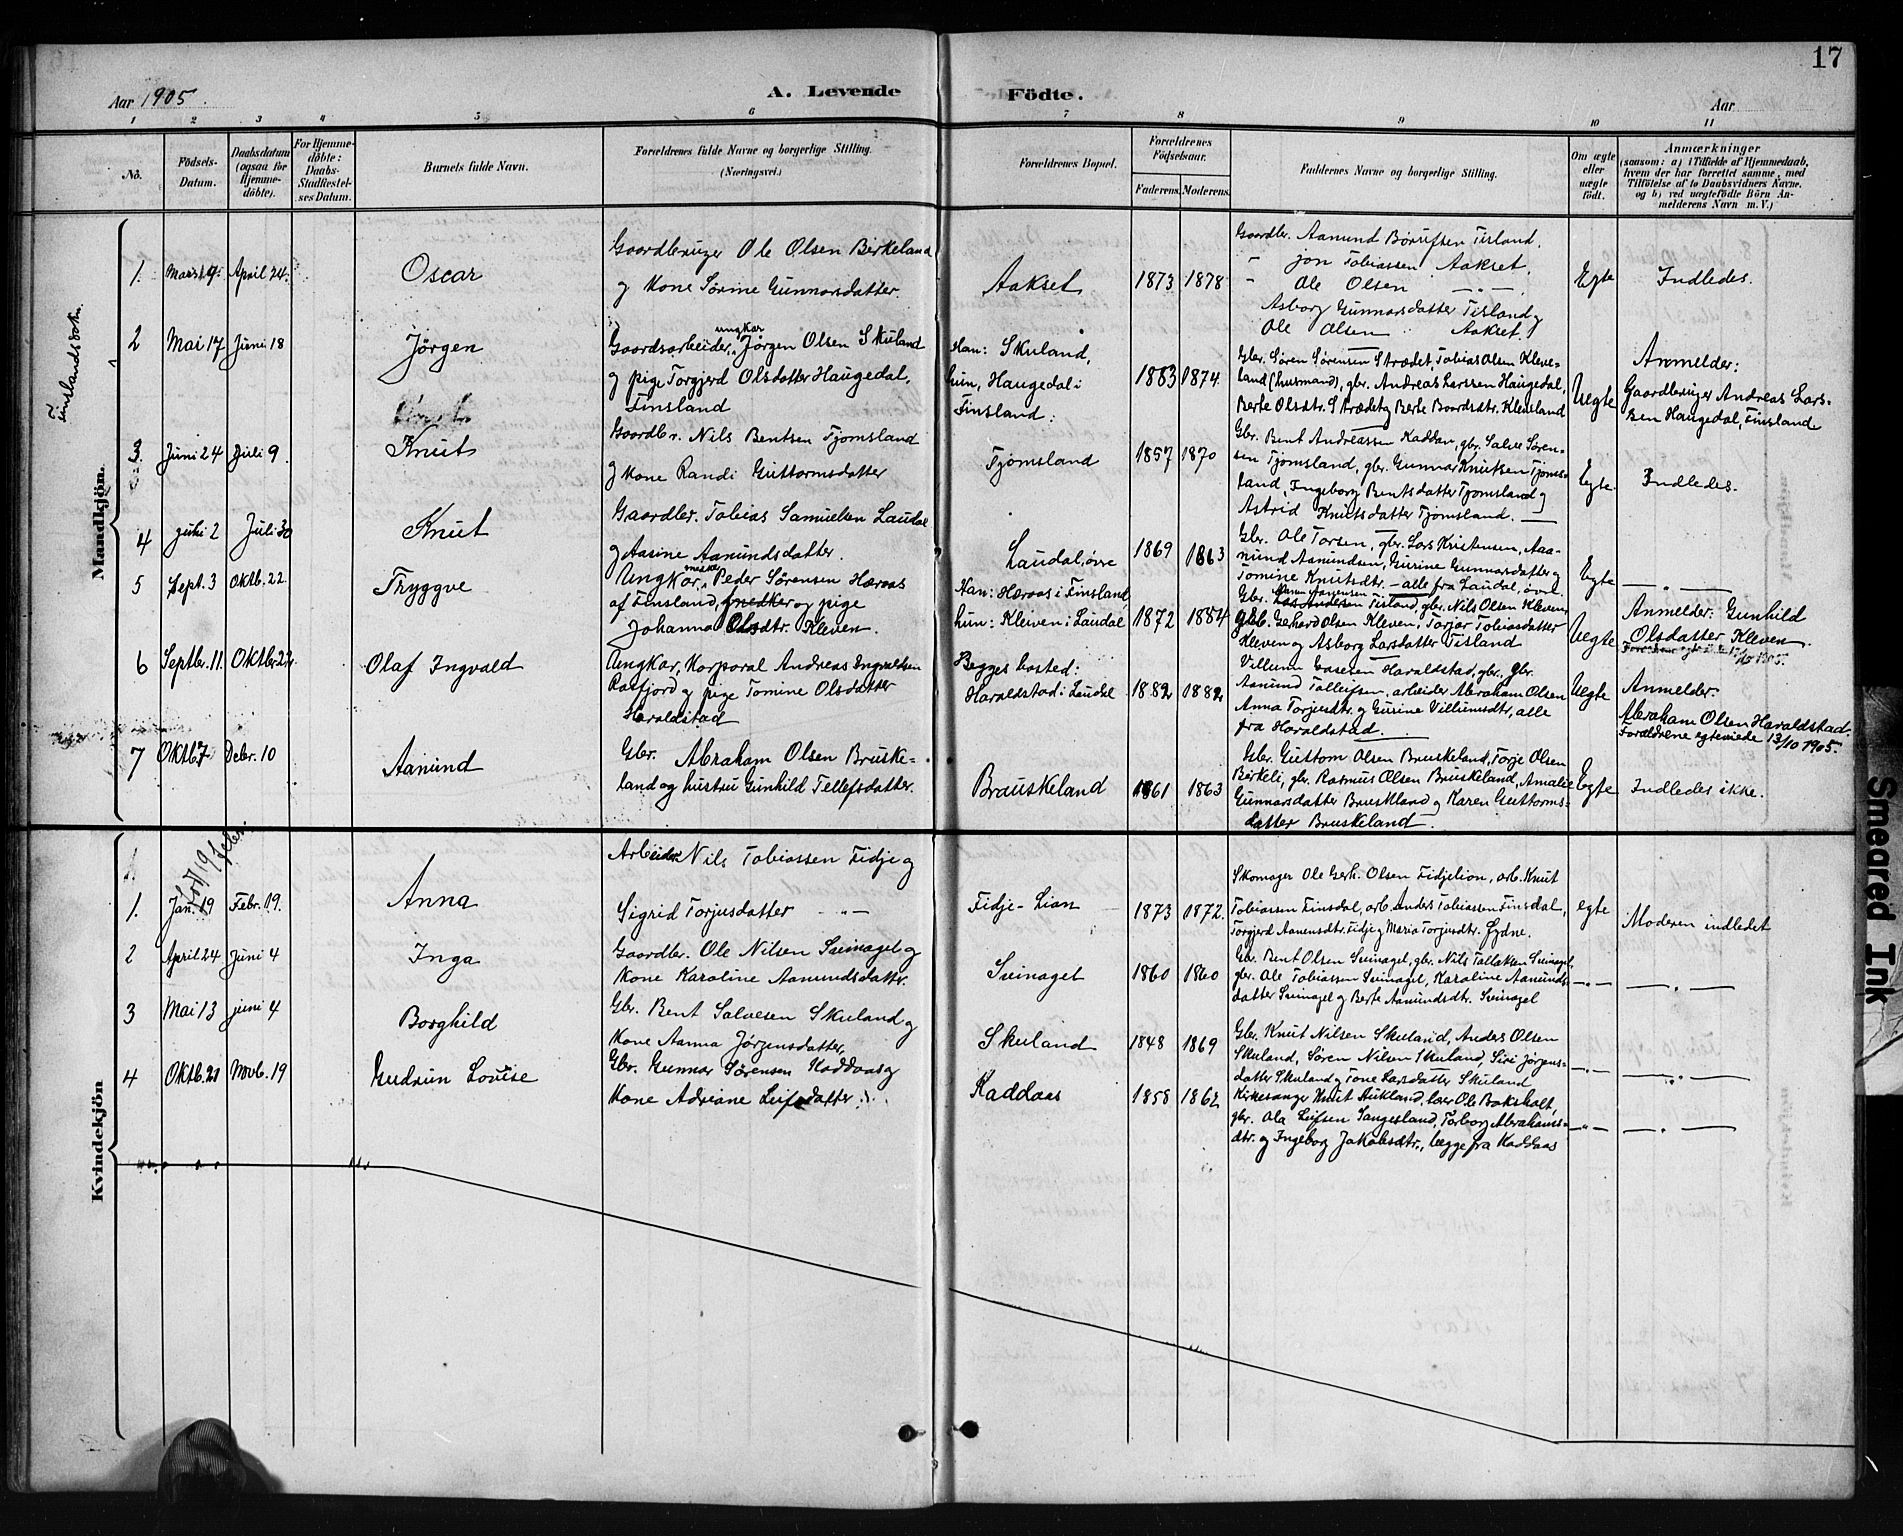 17
Aar 1905.
A. Levende Födte.
Aar
1 2 3 4 5 6 7 8 9 10 11
No.
Födsels-
Datum.
Daabsdatum
(ogsaa for
Hjemme-
döbte).
For Hjemme-
döbte:
Daabs-
Stadfæstel-
ses Datum.
Barnets fulde Navn.
Forældrenes fulde Navne og borgerlige Stilling.
(Næringsvei.)
Forældrenes Bopæl.
Forældrenes
Födselsaar.
Faderens. Moderens.
Faddernes Navne og borgerlige Stilling.
Om ægte
eller
uægte
födt.
Anmærkninger
(saasom: a) i Tilfælde af Hjemmedaab,
hvem der har forrettet samme, med
Tilföielse af to Daabsvidners Navne,
og b) ved uægtefödte Börn An-
melderens Navn m. V.)
Finslands sokn.
Mandkjön.
1. Marts 9. April 24.
Oscar
Gaardbruger Ole Olsen Birkeland
og Kone Sørine Gunnarsdatter.
Aakset
1873 1878
Gaardbr. Aanund Børufsen Tisland.
" Jon Tobiassen Aakset.
" Ole Olsen — " —
Asborg Gunnarsdatter Tisland og
Ole Olsen Aakset.
Egte
Indledes.
2 Mai 17 Juni 18
Jörgen
ungkar
Gaardsarbeider, Jørgen Olsen Skuland
og pige Torgjerd Olsdatter Haugedal,
Finsland
Han: Skuland,
hun, Haugedal i
Finsland:
1883 1874.
Gbr. Søren Sørensen Strædet, Tobias Olsen Kleve-
land (husmand), gbr. Andreas Larssen Haugedal,
Berte Olsdtr. Strædet og Berte Baardsdtr. Kleveland
Uegte
Anmelder:
Gaardbruger Andreas Lars-
sen Haugedal, Finsland
3. Juni 24 Juli 9
Knut
Gaardbr. Nils Bentsen Tjomsland
og Kone Randi Guttormsdatter
Tjomsland
1857 1870
Gbr. Bent Andreassen Kaddan, gbr. Salve Søren-
sen Tjomsland, gbr. Gunnar Knutsen Tjoms-
land, Ingeborg Bentsdatter Tjomsland og
Astrid Knutsdatter Tjomsland.
Egte.
Indledes.
4 juli 2 Juli 30
Knut
Gaardbr. Tobias Samuelsen Laudal
og Aasine Aanundsdatter.
Laudal, øvre
1869 1863
Gbr. Ole Torsen, gbr. Lars Kristensen, Aa-
nund Aanundsen, Gurine Gunnarsdatter og
Tomine Knutsdtr. — alle fra Laudal, øvre
Egte
— " —
5 Sept. 3 Oktb. 22.
Tryggve
Ungkar, Peder Sørensen Høraas
af Finsland, snedker og pige
Johanna Olsdtr. Kleven.
Han: Høraas i Finsland,
hun: Kleiven i Laudal
1872 1884
Gbr. Tisland, gbr. Nils Olsen Kleven,
gbr. Gerhard Olsen Kleven, Torjer Tobiasdatter
Kleven og Asborg Larsdatter Tisland
Uegte
Anmelder: Gunhild
Olsdatter Kleven
1905.
6 Septbr. 11. Oktbr. 22.
Olaf Ingvald
Ungkar, Korporal Andreas Ingvaldsen
Rosfjord og pige Tomine Olsdatter
Haraldstad
Begges bosted:
Haraldstad i Laudal
1882 1882
Villum Haraldstad, gbr. gbr.
Aanund Tallefsen, arbeider Abraham Olsen
Anna Torjusdtr. og Gurine Villumsdtr., alle
fra Haraldstad.
Uegte
Anmelder:
Abraham Olsen Haraldstad.
Forældrene egteviede 13/10 1905.
7 Oktb. 7 Debr. 10
Aanund
Gbr. Abraham Olsen Bruske-
land og hustru Gunhild Tellefsdatter.
Brauskeland
1861 1863
Gbr. Guttom Olsen Bruskeland, Torje Olsen
Birkeli, gbr. Rasmus Olsen Bruskeland, Amalie
Gunnarsdatter Bruskland og Karen Guttorms-
datter Bruskeland.
Egte
Indledes ikke.
Kvindekjön
1. Jan. 19 Febr. 19.
Anna
Arbeider Nils Tobiassen Fidje og
Sigrid Torjusdatter — " —
Fidje-Lian
1873 1872.
Skomager Ole Gerh. Olsen Fidjelion, arb. Knut
Tobiassen Finsdal, arb. Anders Tobiassen Finsdal,
Torgjerd Aanensdtr. Fidje og Maria Torjusdtr. Fydne.
egte
Moderen indledet
2 April 24 Juni 4
Inga
Gaardbr. Ole Nilsen Sveinagel og
Kone Karoline Aanundsdatter.
Sveinagel
1860 1860
Gbr. Bent Olsen Sveinagel, gbr. Nils Tallaksen Sveinagel,
gbr. Ole Tobiassen Sveinagel, Karoline Aanunds-
datter Sveinagel og Berte Aanundsdtr. Sveinagel
— " —
— " —
3 Mai 13 juni 4
Borghild
Gbr. Bent Salvesen Skuland og
Kone Aanna Jørgensdatter,
Skuland
1848 1869
Gbr. Knut Nilsen Skuland, Andas Olsen
Skuland, Søren Nilsen Skuland, Siri Jørgens-
datter Skuland og Tone Larsdatter Skuland
— " —
— " —
4 Oktb. 21 Novb. 19
Gudrun Lovise
Gbr. Gunnar Sørensen Kaddaas og
Kone Adriane Leifsdatter.
Kaddaas
1858 1862
Kirkesanger Knut Aukland, lærer Ole Bakshalt,
gbr. Ola Leifsen Sangesland, Torborg Abrahams-
dtr. og Ingeborg Jakobsdtr., begge fra Kaddaas
— " —
— " —
Smeared Ink